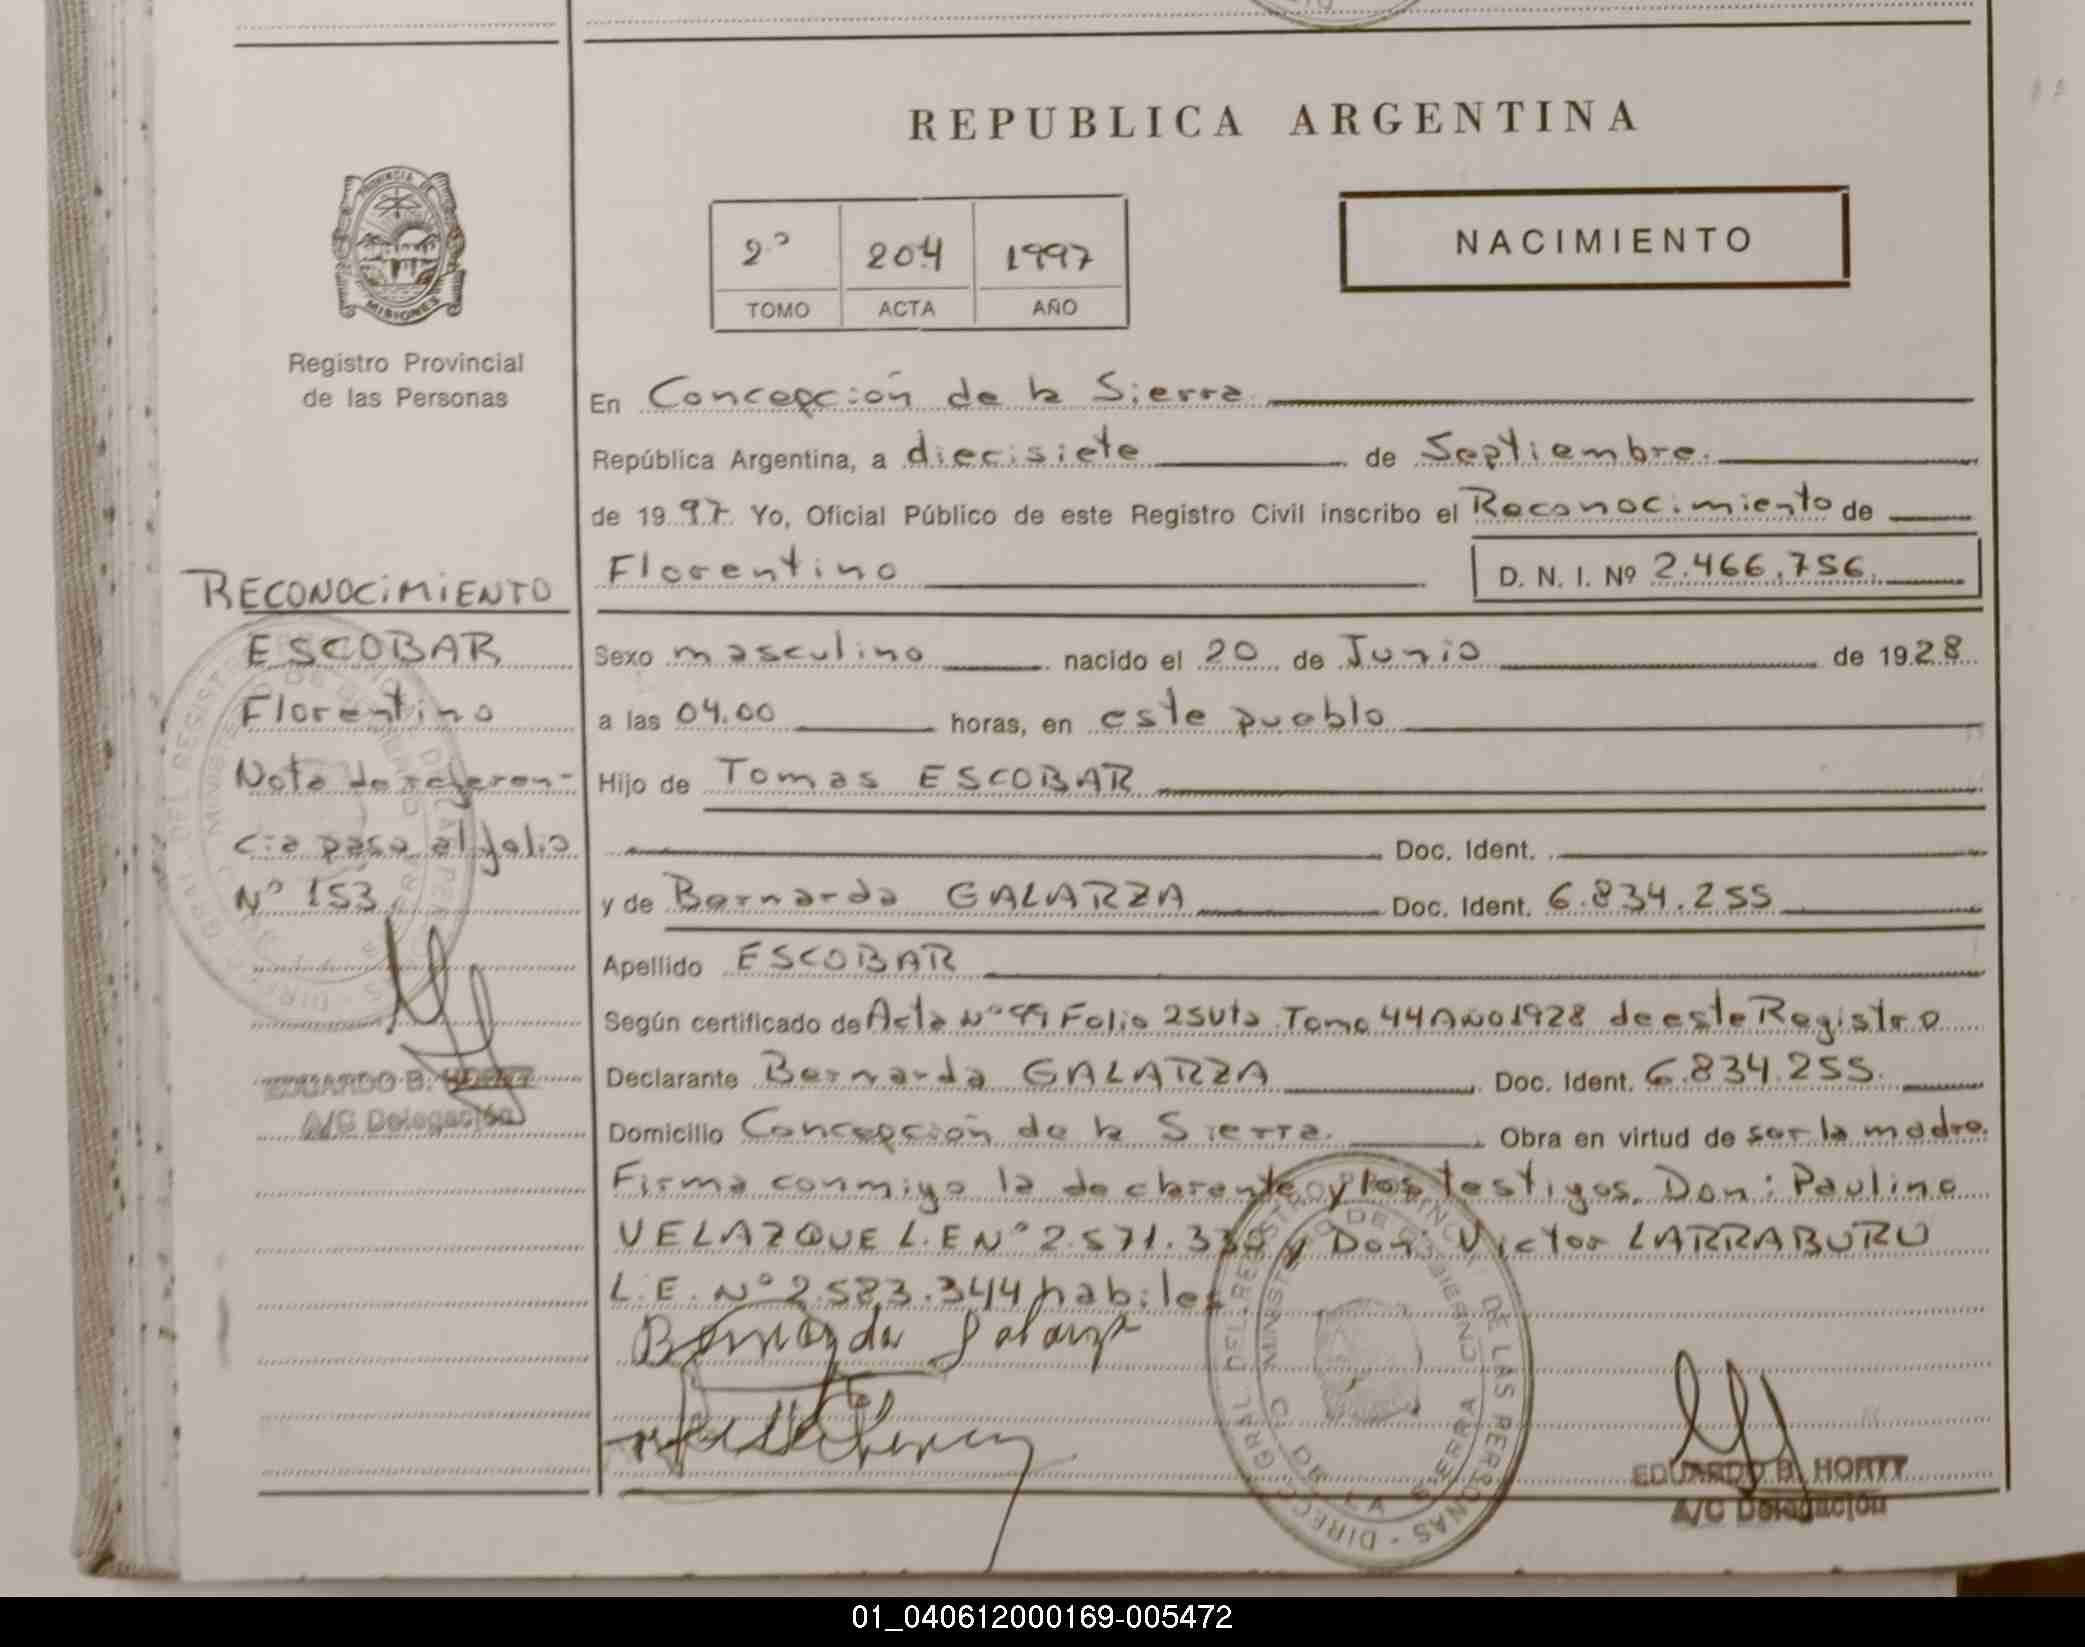 REPUBLICA ARGENTINA
2º 204 1997
TOMO ACTA AÑO
NACIMIENTO
PROVINCIA DE
MISIONES
Registro Provincial
de las Personas
En Concepción de la Sierra
República Argentina, a diecisiete de Septiembre.
de 1997. Yo, Oficial Público de este Registro Civil inscribo el Reconocimiento de
Florentino D. N. I. Nº 2.466.756.
Sexo masculino nacido el 20 de Junio de 1928
a las 04.00 horas, en este pueblo
Hijo de Tomas ESCOBAR
Doc. Ident.
y de Bernarda GALARZA Doc. Ident. 6.834.255
Apellido ESCOBAR
Según certificado de Acta Nº 99 Folio 25 Vta Tomo 44 Año 1928 de este Registro
Declarante Bernarda GALARZA Doc. Ident. 6.834.255.
Domicilio Concepción de la Sierra. Obra en virtud de ser la madre.
Firma conmigo la declarante y los testigos. Don: Paulino
VELAZQUE L.E Nº 2.571.339 y Don: Victor LARRABURU
L.E. Nº 2.583.344 habiles
Bernarda Galarza
RECONOCIMIENTO
ESCOBAR
Florentino
Nota de referen-
cia pasa al folio
Nº 153
EDUARDO B. HORTT
A/C Delegación
EDUARDO B. HORTT
A/C Delegación
01_040612000169-005472